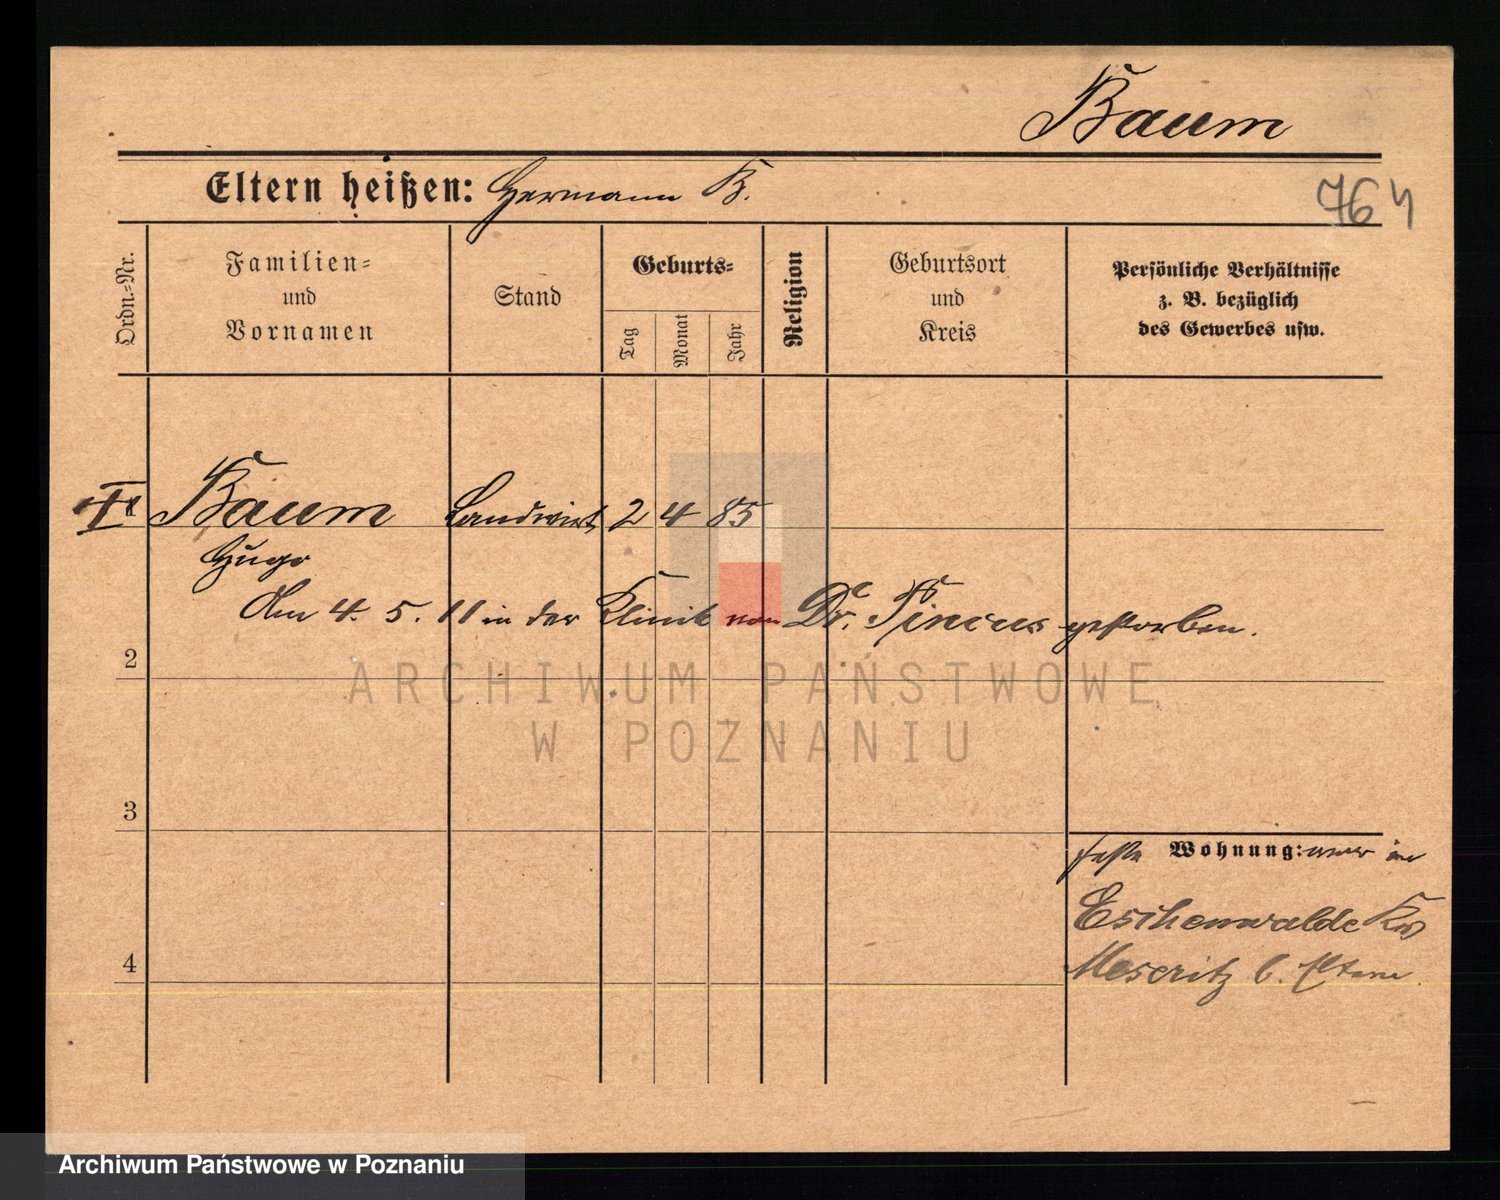 Baum
Eltern heißen: Hermann B.
764
Ordn.-Nr.
Familien-
und
Vornamen
Stand
Geburts-
Tag
Monat
Jahr
Religion
Geburtsort
und
Kreis
Persönliche Verhältnisse
z. B. bezüglich
des Gewerbes usw.
1 Baum Landwirt 2 4 85
Hugo
Am 4. 5. 11 in der Klinik von Dr. Pincus gestorben.
2
ARCHIWUM PAŃSTWOWE
W POZNANIU
3
feste Wohnung: war in
Eschenwalde Krs
4
Meseritz b. Eltern.
Archiwum Państwowe w Poznaniu